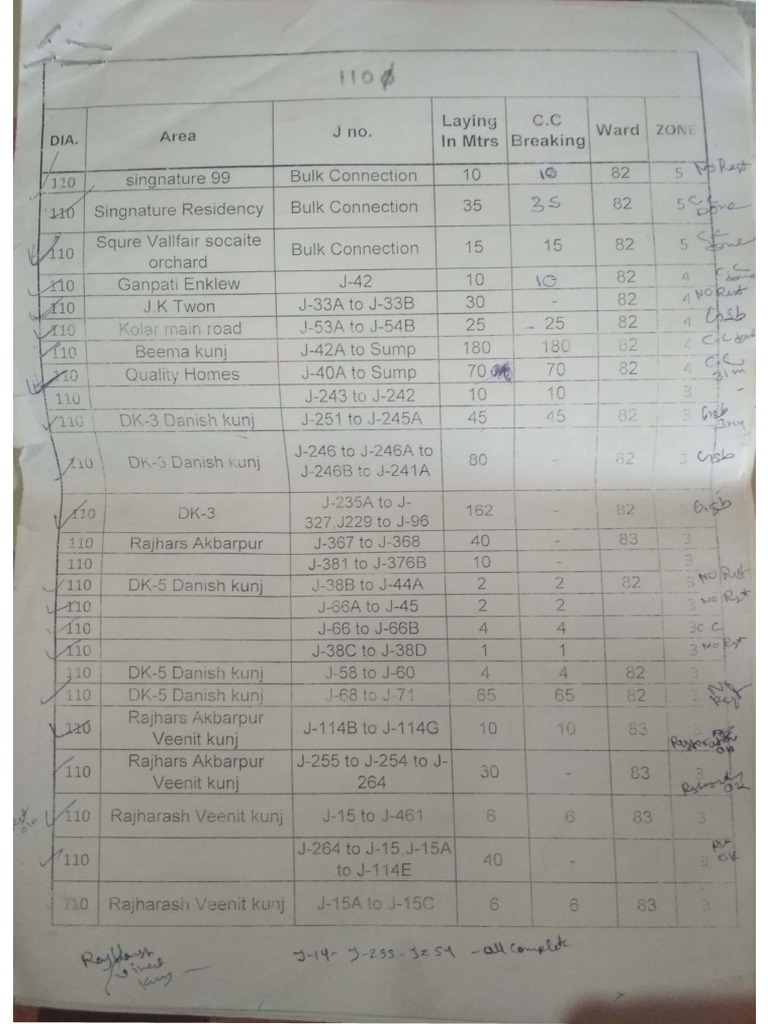 110φ
DIA. Area J no. Laying In Mtrs C.C Breaking Ward ZONE
110 singnature 99 Bulk Connection 10 10 82 5 No Rest
110 Singnature Residency Bulk Connection 35 35 82 5 C.C Done
110 Squre Vallfair socaite orchard Bulk Connection 15 15 82 5 C.C Done
110 Ganpati Enklew J-42 10 10 82 4 C.C done
110 J.K Twon J-33A to J-33B 30 - 82 4 NO Rest
110 Kolar main road J-53A to J-54B 25 - 25 82 4 Gsb
110 Beema kunj J-42A to Sump 180 180 82 4 C.C done
110 Quality Homes J-40A to Sump 70 70 82 4 C.C 31m
110 J-243 to J-242 10 10 3 -
110 DK-3 Danish kunj J-251 to J-245A 45 45 82 3 Gsb 30m
110 DK-3 Danish kunj J-246 to J-246A to J-246B to J-241A 80 - 82 3 Gsb
110 DK-3 J-235A to J-327,J229 to J-96 162 - 82 Gsb
110 Rajhars Akbarpur J-367 to J-368 40 - 83 3
110 J-381 to J-376B 10 - 3
110 DK-5 Danish kunj J-38B to J-44A 2 2 82 3 NO Rest
110 J-66A to J-45 2 2 3 NO Rest
110 J-66 to J-66B 4 4 3 C C
110 J-38C to J-38D 1 1 3 NO Rest
110 DK-5 Danish kunj J-58 to J-60 4 4 82 3
110 DK-5 Danish kunj J-68 to J-71 65 65 82 3
110 Rajhars Akbarpur Veenit kunj J-114B to J-114G 10 10 83 3
110 Rajhars Akbarpur Veenit kunj J-255 to J-254 to J-264 30 - 83 3 OK
110 Rajharash Veenit kunj J-15 to J-461 6 6 83 3
110 J-264 to J-15,J-15A to J-114E 40 - 3 OK
110 Rajharash Veenit kunj J-15A to J-15C 6 6 83 3
J-14- J-255-J254 - all complete